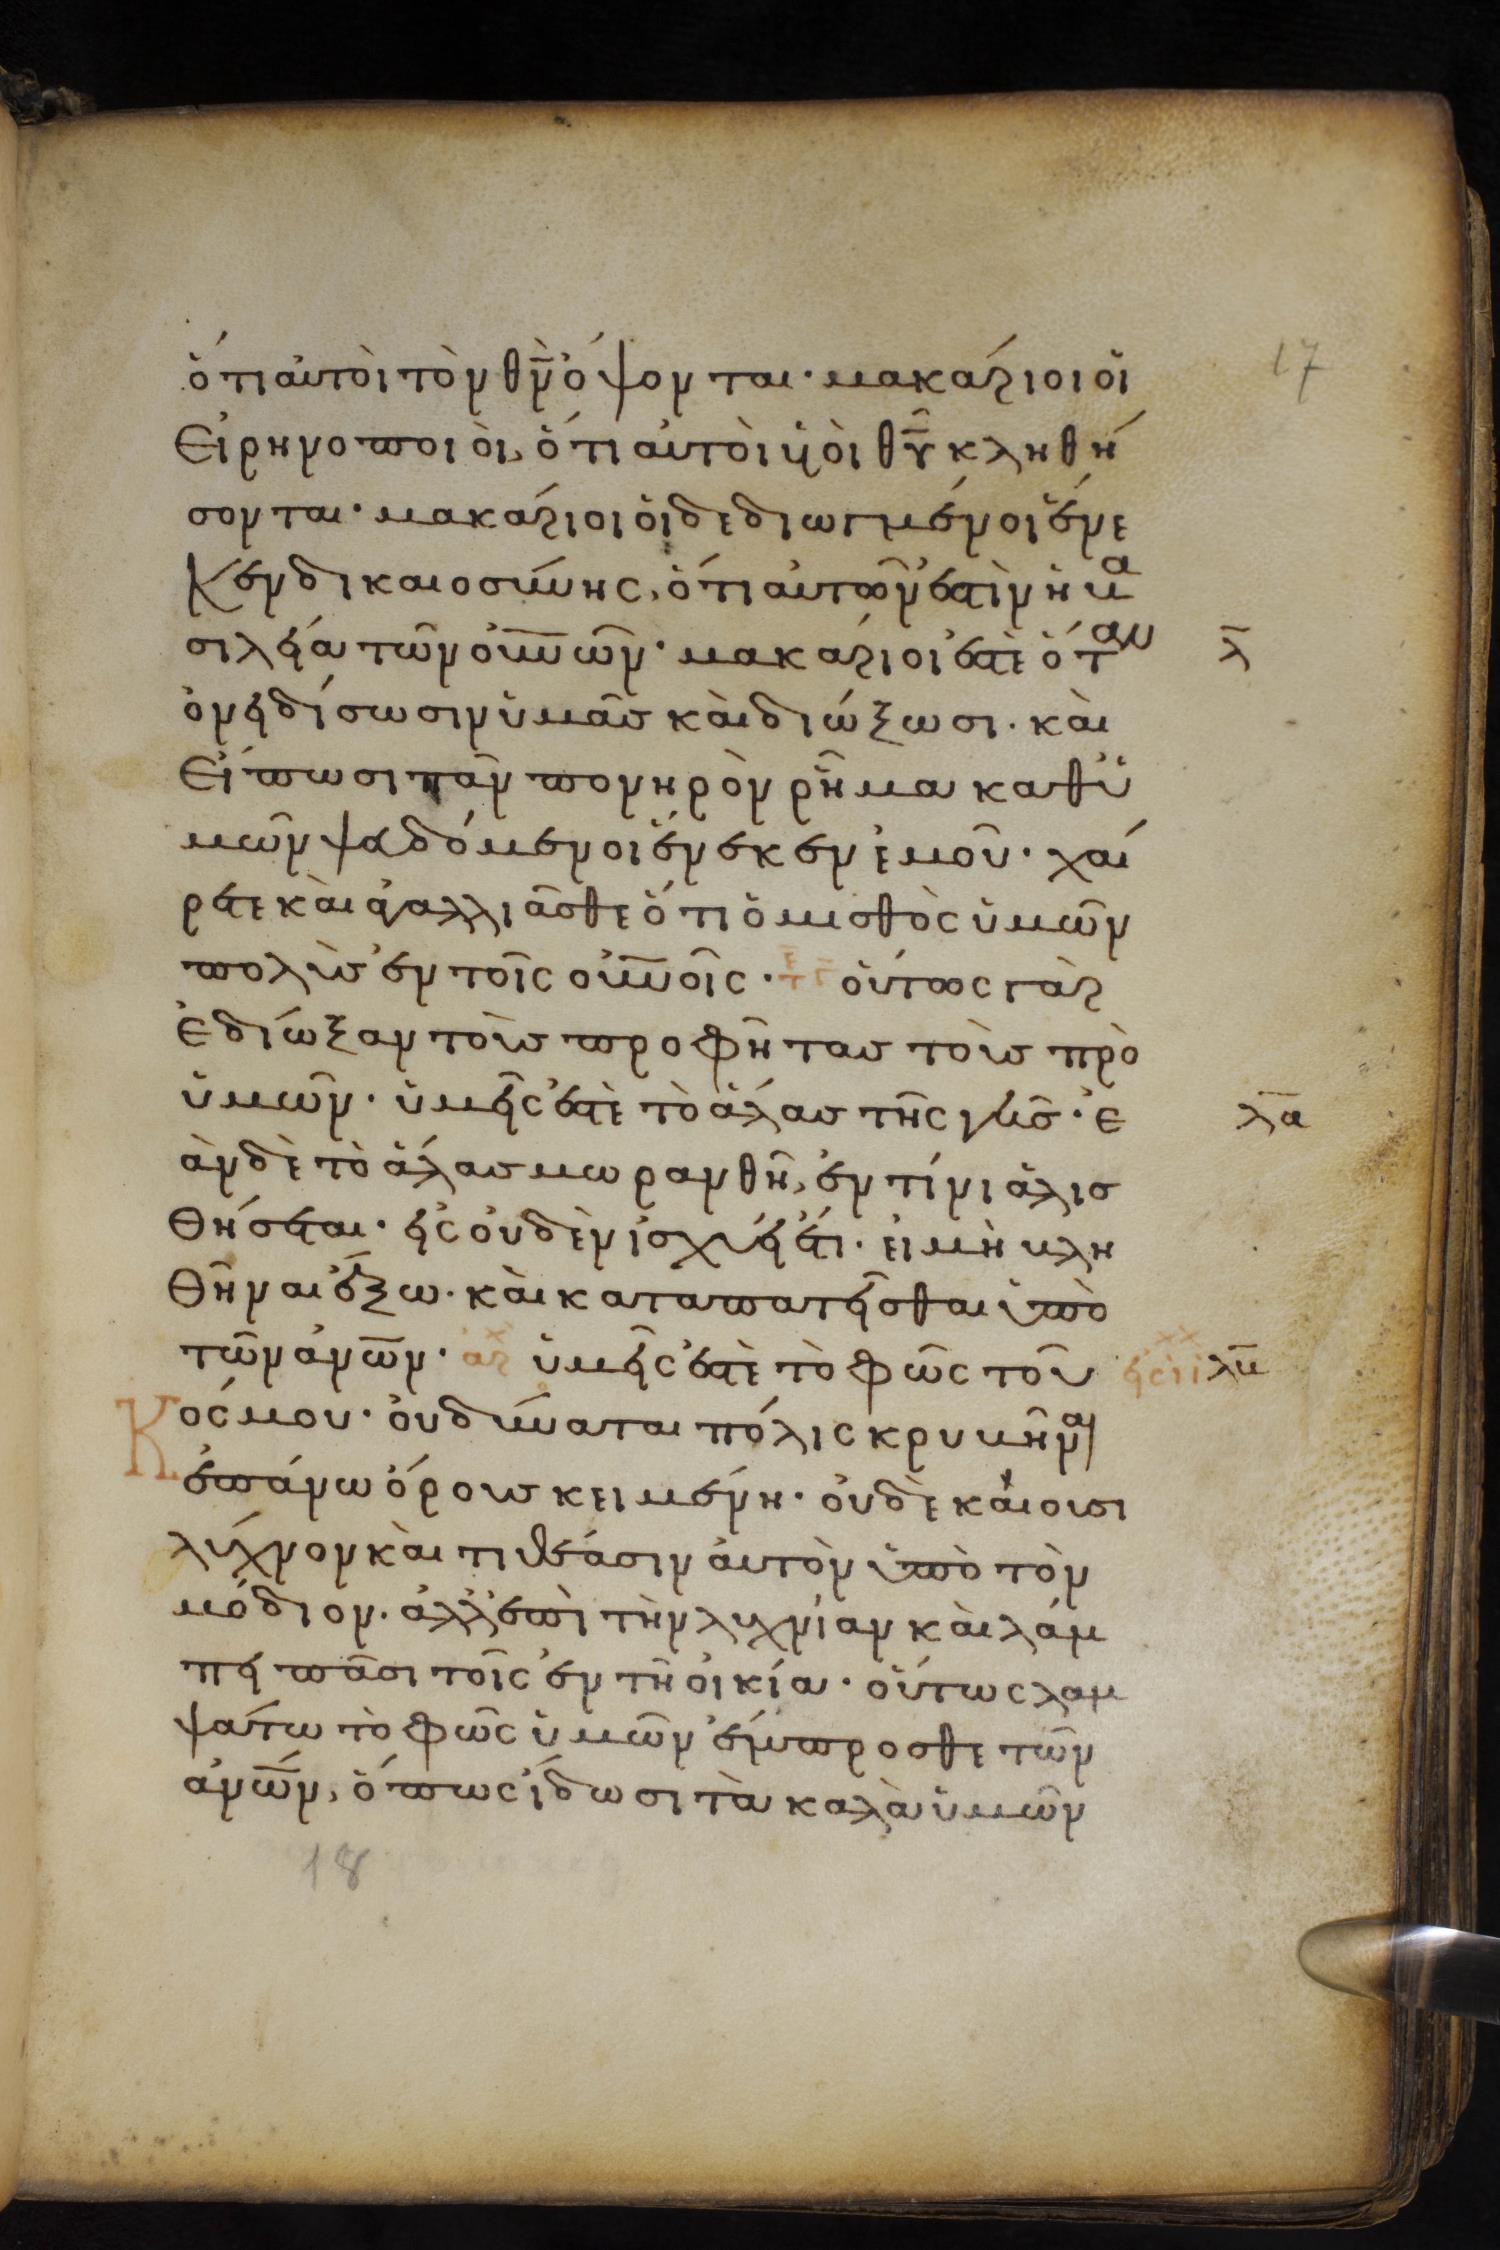 17
ὅτι αὐτοὶ τὸν θ̅ν̅ ὄψονται· μακάριοι οἱ
εἰρηνοποιοὶ, ὅτι αὐτοὶ υἱοὶ θ̅υ̅ κληθή
σονται· μακάριοι οἱ δεδιωγμένοι ἕνε
κεν δικαιοσύνης, ὅτι αὐτῶν ἐστὶν ἡ βα
σιλεία τῶν οὐ̅ν̅ῶν· μακάριοι ἐστὲ ὅταν λ̅
ὀνειδίσωσιν ὑμᾶς καὶ διώξωσι· καὶ
εἴπωσι πᾶν πονηρὸν ῥῆμα καθ' ὑ
μῶν ψευδόμενοι ἕνεκεν ἐμοῦ· χαί
ρετε καὶ ἀγαλλιᾶσθε ὅτι ὁ μισθὸς ὑμῶν
πολὺς ἐν τοῖς οὐ̅ν̅οῖς· οὕτως γὰρ
ἐδίωξαν τοὺς προφήτας τοὺς πρὸ
ὑμῶν· ὑμεῖς ἐστὲ τὸ ἅλας τῆς γῆς· ἐ λ̅α̅
ὰν δὲ τὸ ἅλας μωρανθῆ, ἐν τίνι ἁλισ
θήσεται· εἰς οὐδὲν ἰσχύει ἔτι· εἰ μὴ βλη
θῆναι ἔξω· καὶ καταπατεῖσθαι ὑπὸ
τῶν ἀν̅ω̅ν· ἀρ ὑμεῖς ἐστὲ τὸ φῶς τοῦ λ̅β̅
Κόσμου· οὐ δύναται πόλις κρυβῆναι
ἐπάνω ὄρους κειμένη· οὐδὲ καίουσι
λύχνον καὶ τιθέασιν αὐτὸν ὑπὸ τὸν
μόδιον· ἀλλ' ἐπὶ τὴν λυχνίαν καὶ λάμ
πει πᾶσι τοῖς ἐν τῆ οἰκία· οὕτως λαμ
ψάτω τὸ φῶς ὑμῶν ἔμπροσθε τῶν
ἀν̅ω̅ν, ὅπως ἴδωσι τὰ καλὰ ὑμῶν
18